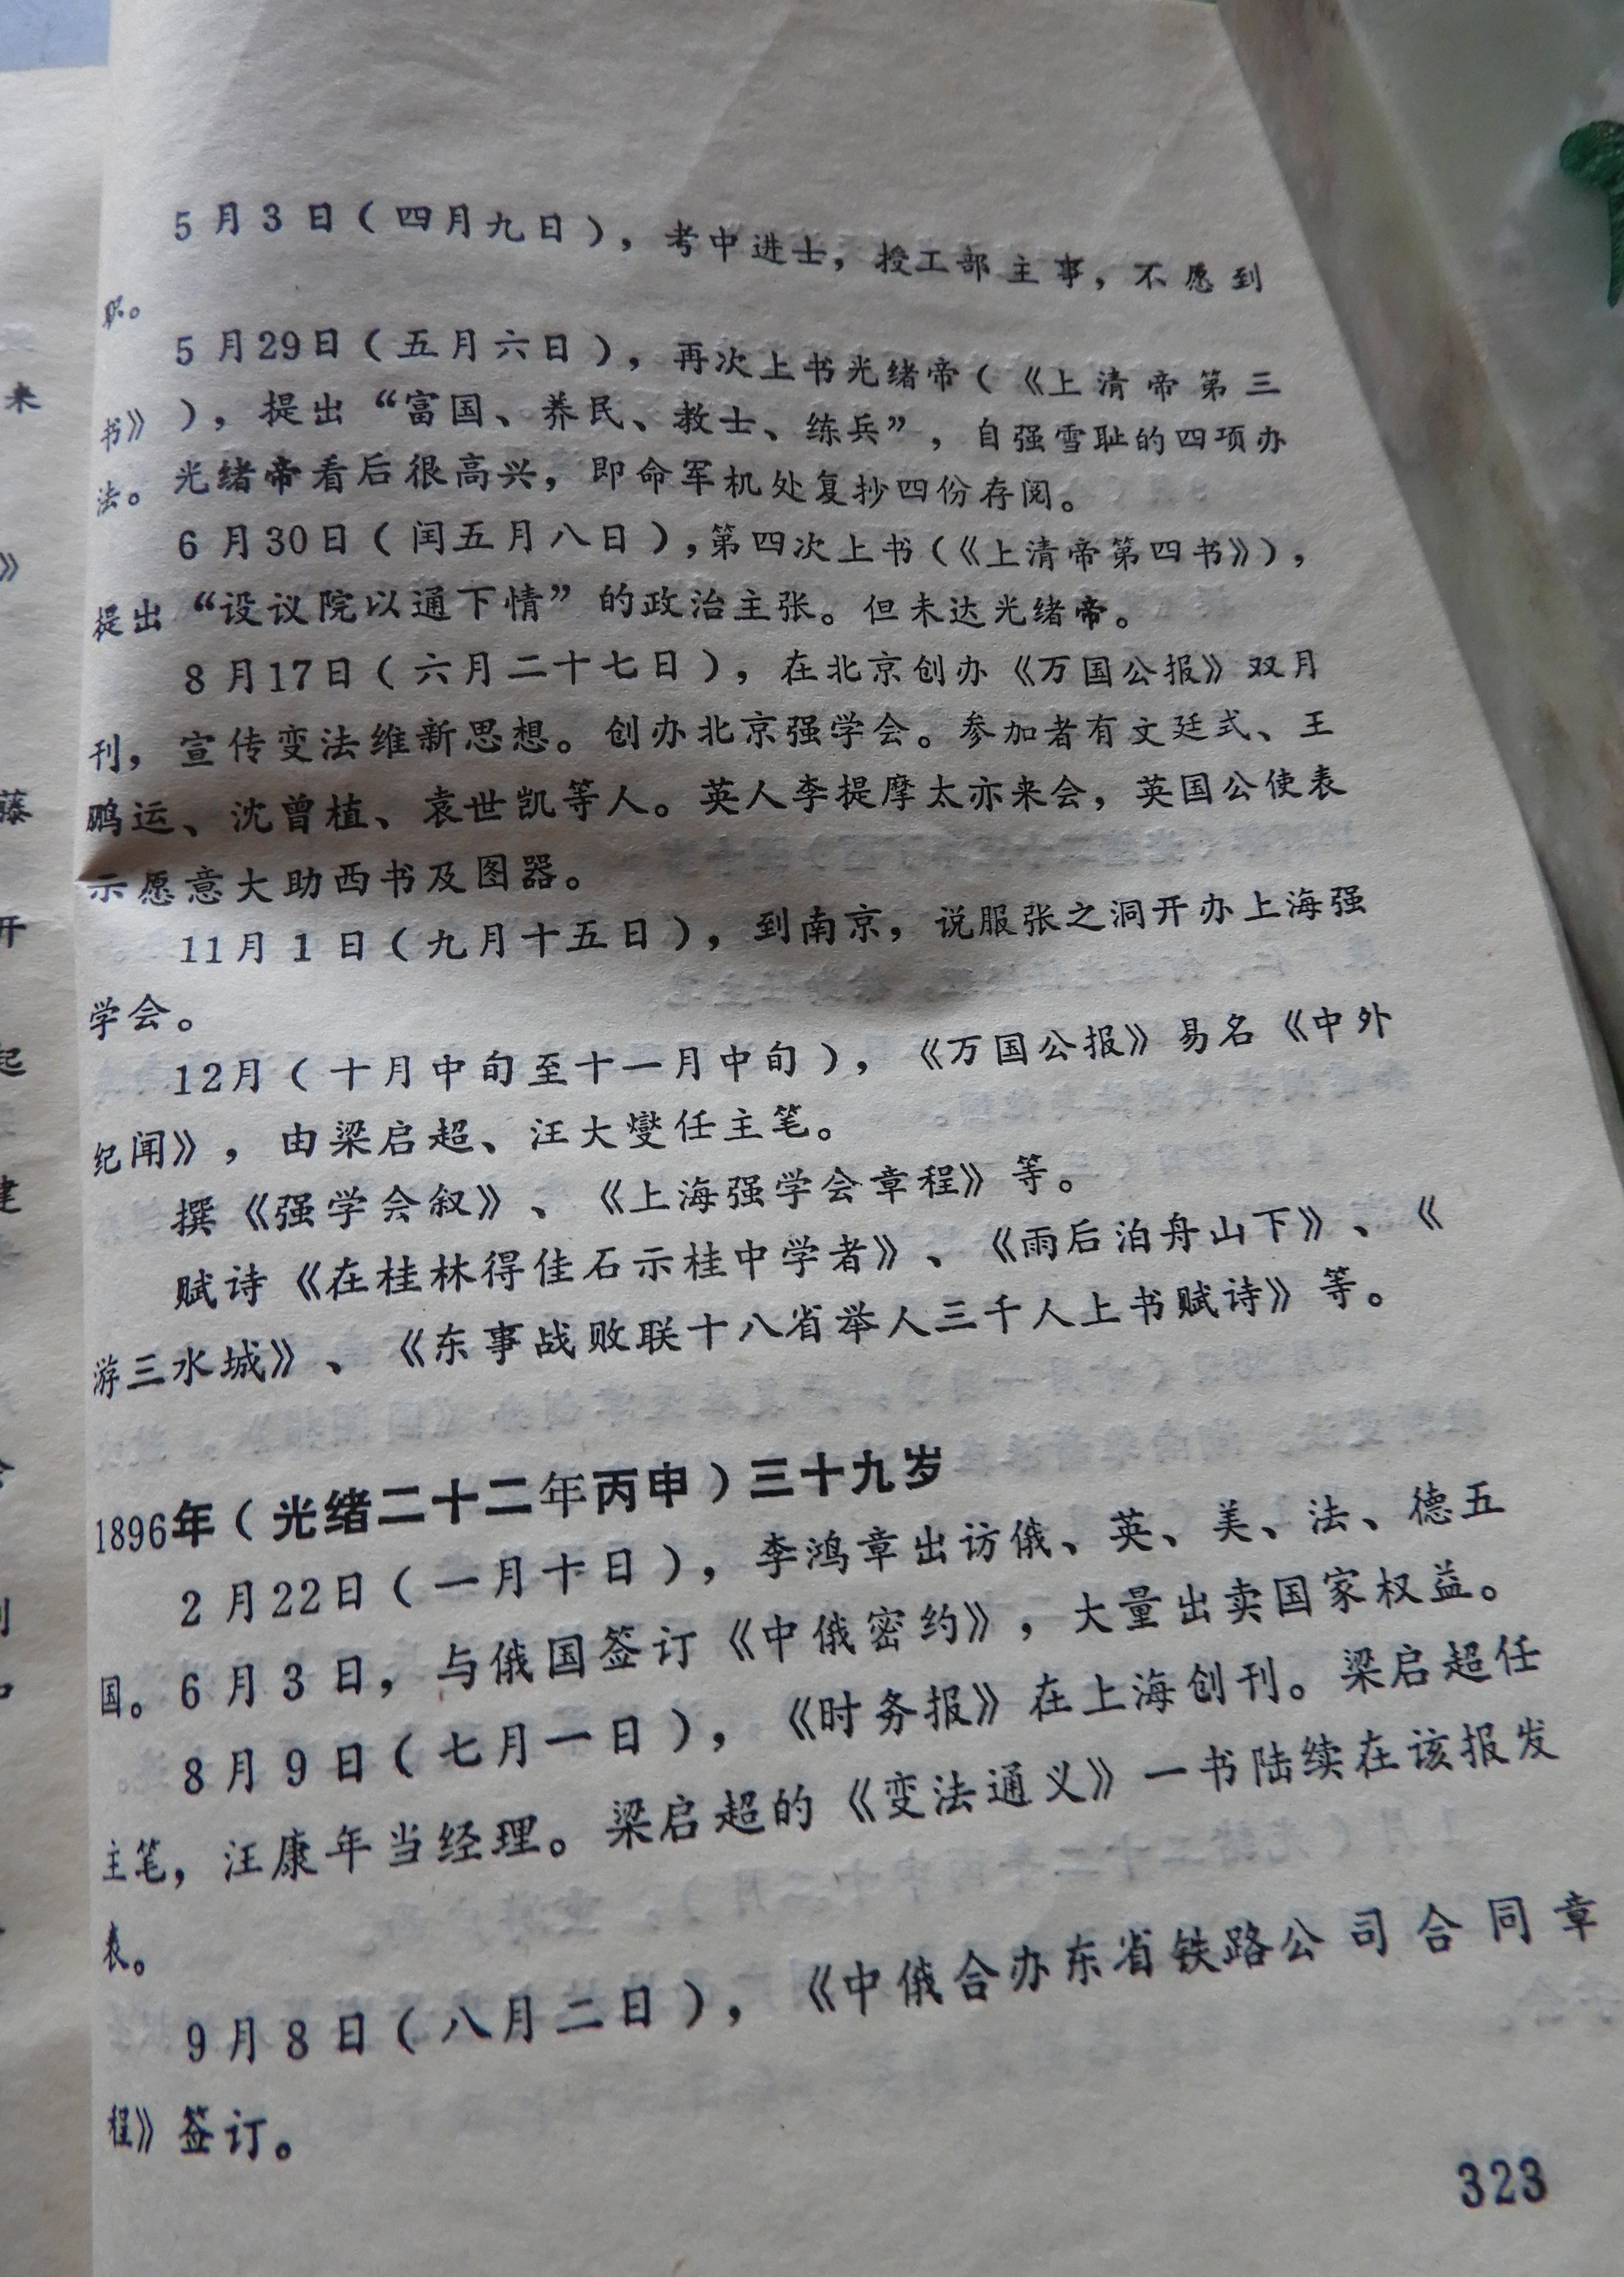 5月3日（四月九日），考中进士，授工部主事，不愿到
职。
5月29日（五月六日），再次上书光绪帝（《上清帝第三
书》），提出“富国、养民、教士、练兵”，自强雪耻的四项办
法。光绪帝看后很高兴，即命军机处复抄四份存阅。
6月30日（闰五月八日），第四次上书（《上清帝第四书》），
提出“设议院以通下情”的政治主张。但未达光绪帝。
8月17日（六月二十七日），在北京创办《万国公报》双月
刊，宣传变法维新思想。创办北京强学会。参加者有文廷式、王
鹏运、沈曾植、袁世凯等人。英人李提摩太亦来会，英国公使表
示愿意大助西书及图器。
11月1日（九月十五日），到南京，说服张之洞开办上海强
学会。
12月（十月中旬至十一月中旬），《万国公报》易名《中外
纪闻》，由梁启超、汪大燮任主笔。
撰《强学会叙》、《上海强学会章程》等。
赋诗《在桂林得佳石示桂中学者》、《雨后泊舟山下》、《
游三水城》、《东事战败联十八省举人三千人上书赋诗》等。
1896年（光绪二十二年丙申）三十九岁
2月22日（一月十日），李鸿章出访俄、英、美、法、德五
国。6月3日，与俄国签订《中俄密约》，大量出卖国家权益。
8月9日（七月一日），《时务报》在上海创刊。梁启超任
主笔，汪康年当经理。梁启超的《变法通义》一书陆续在该报发
表。
9月8日（八月二日），《中俄合办东省铁路公司合同章
程》签订。
323